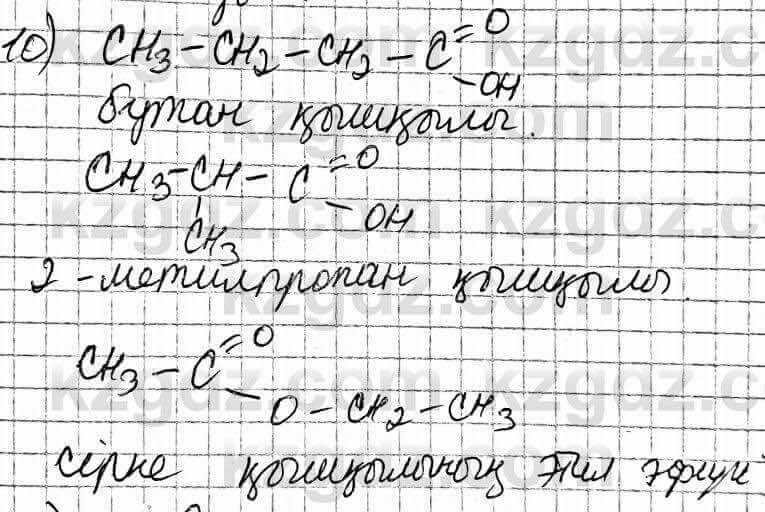 10) CH3-CH2-CH2-C=O
-OH
бутан қышқылы.
CH3-CH-C=O
-OH
CH3
2-метилпропан қышқылы.
CH3-C=O
-O-CH2-CH3
сірке қышқылының этил эфирі